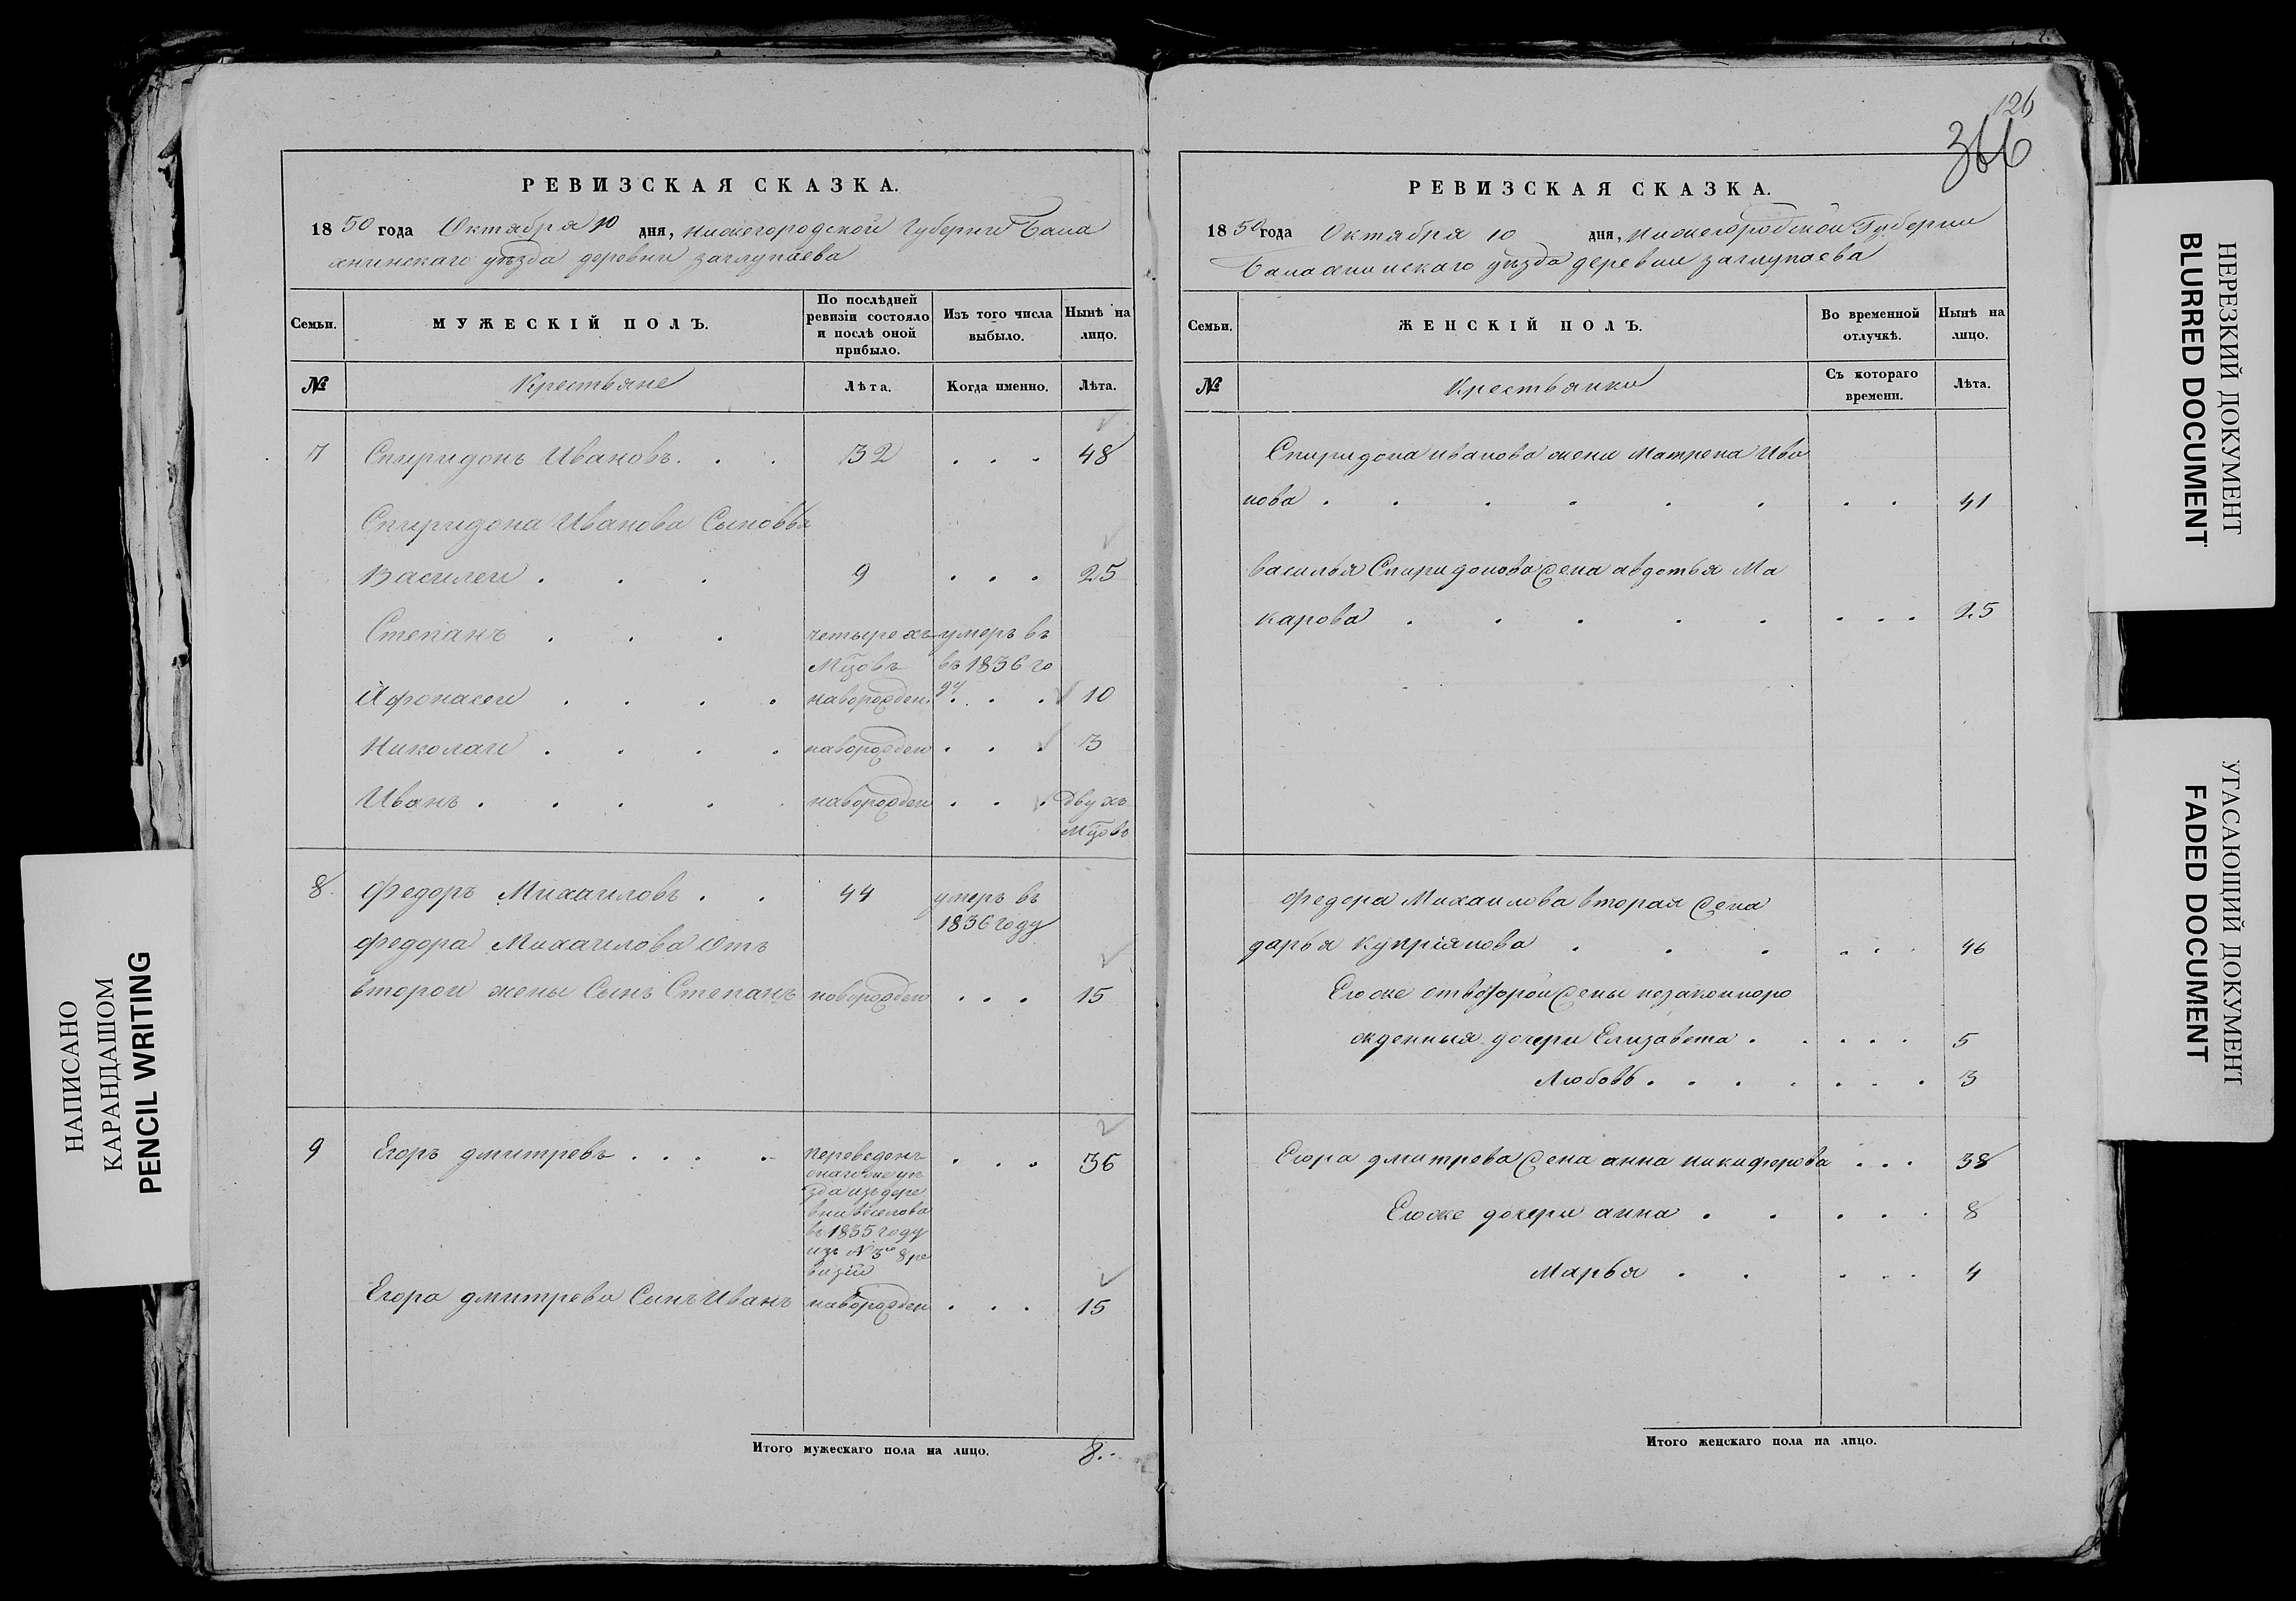 126
366
РЕВИЗСКАЯ СКАЗКА.
1850 года Октября 10 дня, нижегородской Губернии Бала
хнинскаго уѣзда деревни заглупаева
Семьи.
МУЖЕСКІЙ ПОЛЪ.
По послѣдней
ревизіи состояло
и послѣ оной
прибыло.
Изъ того числа
выбыло.
Нынѣ на
лицо.
№
Крестьяне
Лѣта.
Когда именно.
Лѣта.
7 Спиридонъ Ивановъ. . . 32 . . . 48
Спиридона Иванова Сыновья
Василеи . . . 9 . . . 25
Степанъ . . . четырехъ умеръ въ
мцовъ въ 1836 го
ду
Афонасеи . . . . наворожден . . . 10
Николаи . . . . наворожден . . . 3
Иванъ . . . . . наворожден . . . двухъ
мцовъ
8. Федоръ Михаиловъ . . 44 умеръ въ
1836 году
Федора Михаилова отъ
второи жены Сынъ Степанъ новорожден . . . 15
9 Егоръ дмитревъ . . . . переведенъ . . . 36
онагоже уѣ
зда изъ дере
вни веселова
въ 1835 году
изъ № 3го 8 ре
визіи
Егора дмитрева Сынъ Иванъ наворожден . . . 15
Итого мужескаго пола на лицо. 8.
РЕВИЗСКАЯ СКАЗКА.
1850 года Октября 10 дня, нижегородской Губернии
Балахнинскаго уѣзда деревни заглупаева
Семьи.
ЖЕНСКІЙ ПОЛЪ.
Во временной
отлучкѣ.
Нынѣ на
лицо.
№
Крестьянки
Съ котораго
времени.
Лѣта.
Спиридона иванова жена Матрена Ива
нова . . . . . . . . 41
василья Спиридонова жена авдотья Ма
карова . . . . . . . . 25
Федора Михаилова вторая жена
дарья Купріянова . . . . . . 46
Егоже отвторои жены незаконноро
жденныя дочери Елизавета . . . . . 5
Любовь . . . . . . . 3
Егора дмитрева жена анна никифорова . . . 38
Егоже дочери анна . . . . . 8
Марья . . . . . 4
Итого женскаго пола на лицо.
НАПИСАНО
КАРАНДАШОМ
PENCIL WRITING
НЕРЕЗКИЙ ДОКУМЕНТ
BLURRED DOCUMENT
УГАСАЮЩИЙ ДОКУМЕНТ
FADED DOCUMENT